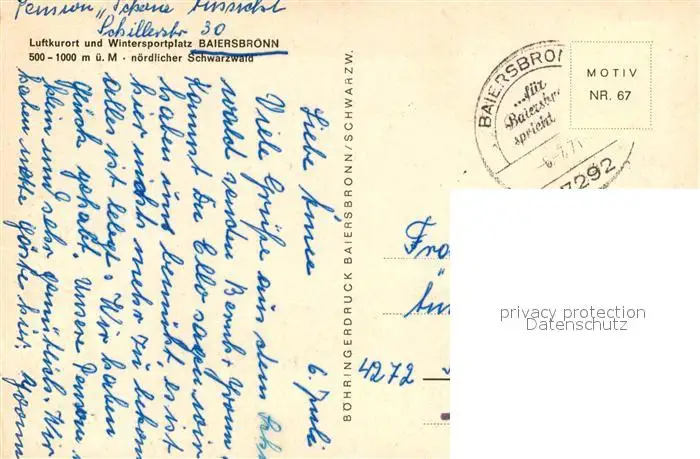 Pension "Schöne Aussicht
Schillerstr 30
Luftkurort und Wintersportplatz BAIERSBRONN
500–1000 m ü. M · nördlicher Schwarzwald
6. Juli
Liebe
Viele Grüße aus dem Schw
wald senden Bernh. + Yvonn
kannst Du Ello sagen, wir
haben uns bemüht, es ist
hier nichts mehr zu bekom
alles ist belegt. Wir haben
Glück gehabt. Unsere Pension
klein und sehr gemütlich. Wir
haben nette Gäste hier. Yvonn
BÖHRINGERDRUCK BAIERSBRONN/SCHWARZW.
BAIERSBRON
...für
Baiersbr
spricht
6.-7.71
7292
MOTIV
NR. 67
Fra
4272
privacy protection
Datenschutz